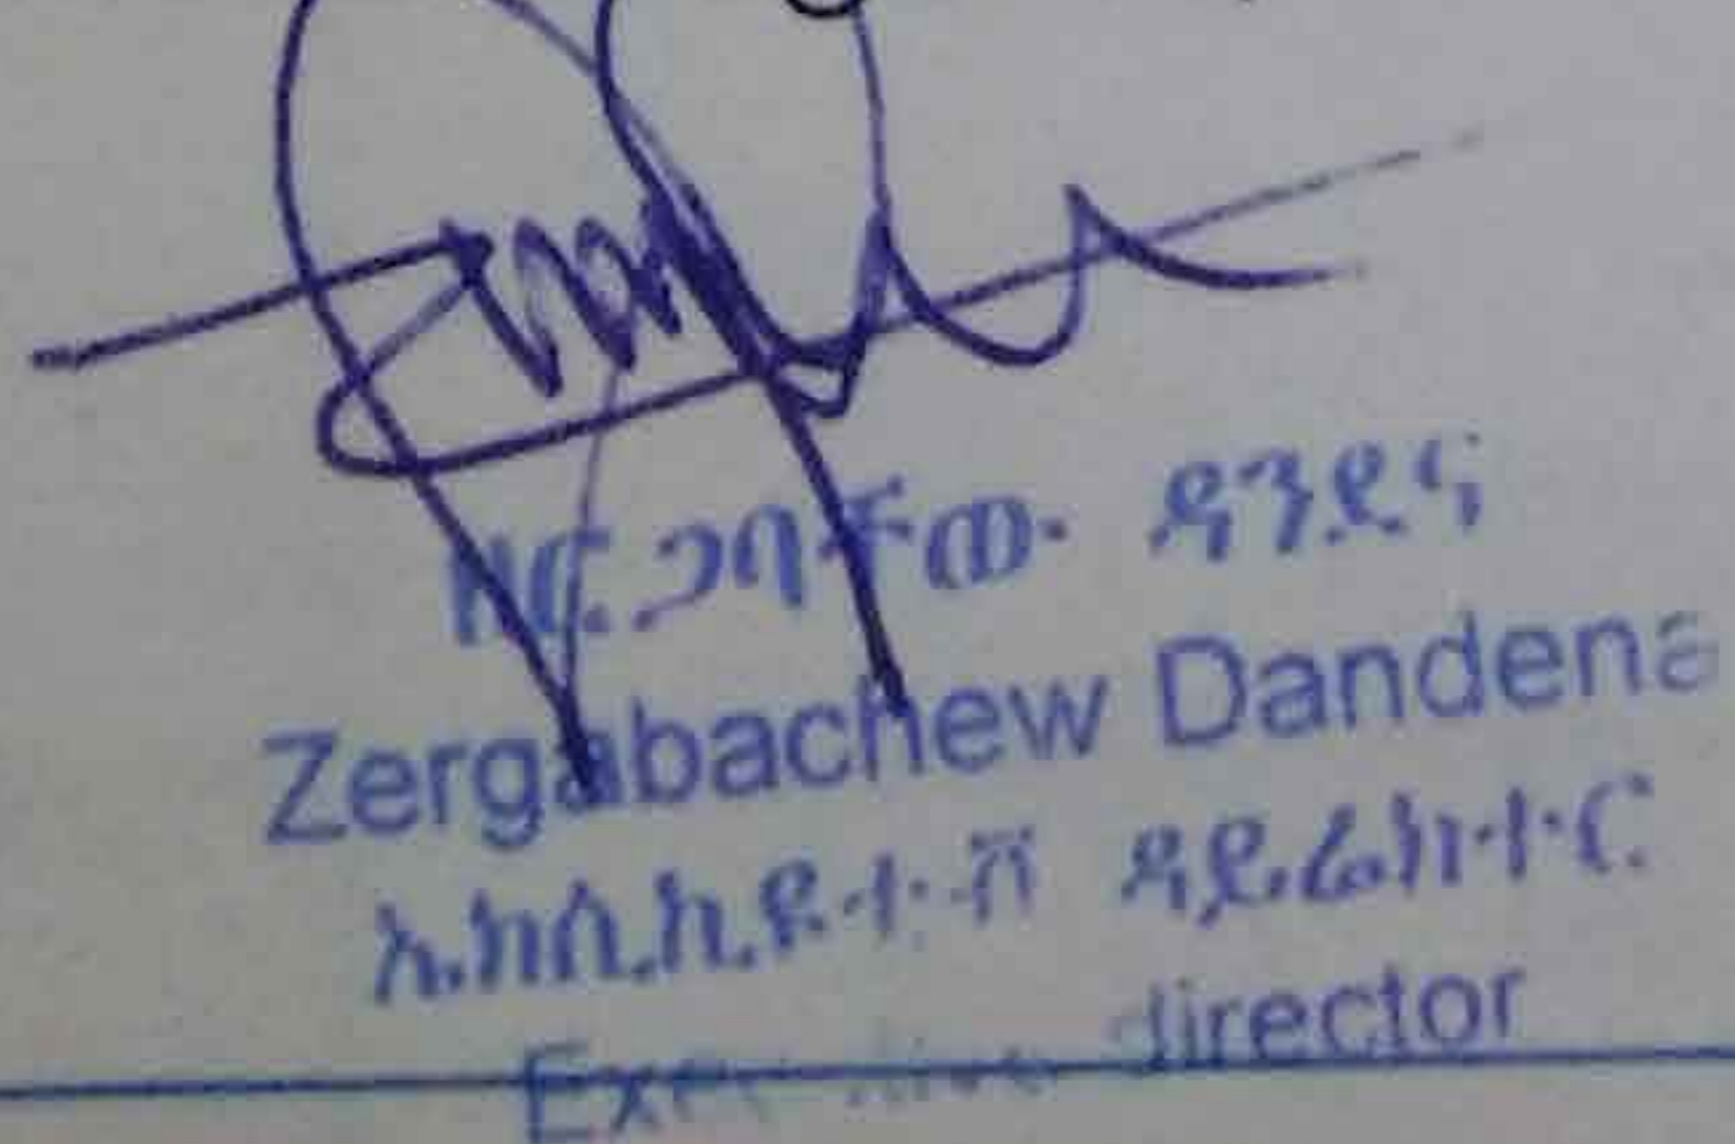 ዘርጋባቸው ዳንደና
Zergabachew Dandena
ኤክስኪዩቲቭ ዳይሬክተር
Executive director